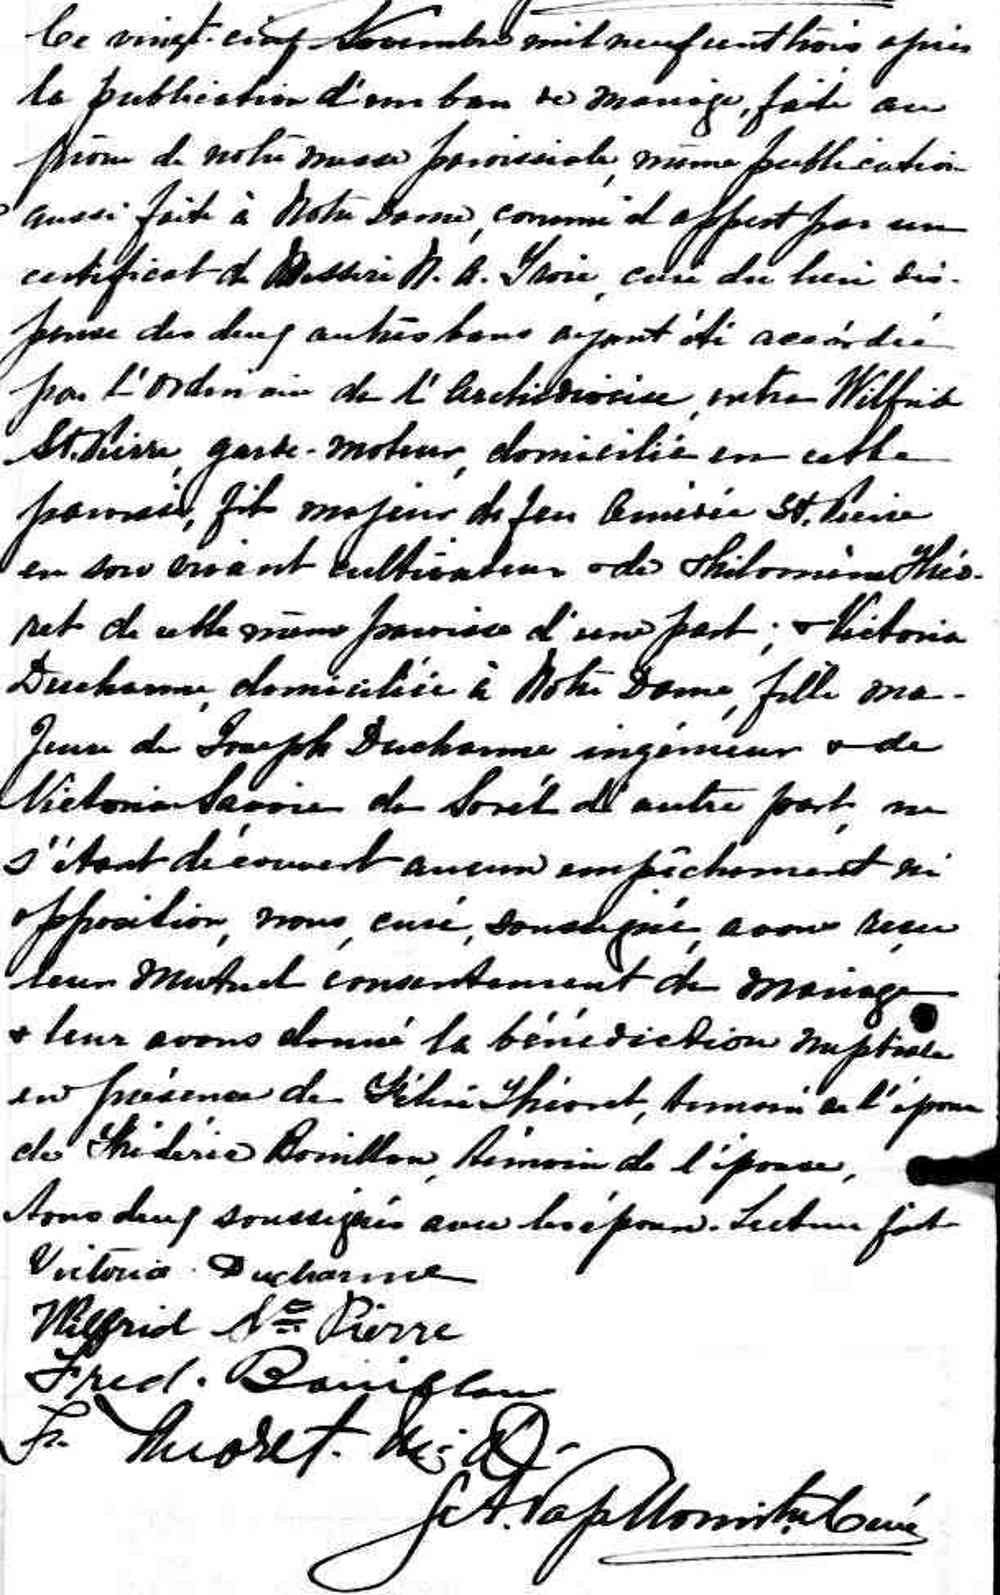 Ce vingt-cinq Novembre mil neuf cent trois après
la publication d'un ban de mariage, faite au
prône de notre messe paroissiale, même publication
aussi faite à Notre Dame, comme il appert par un
certificat de Messire N. A. Troie, curé du lieu dis-
pense des deux autres bans ayant été accordée
par l'Ordinaire de l'Archidiocèse, entre Wilfrid
St. Pierre, garde-moteur, domicilié en cette
paroisse, fils majeur de feu Aimée St. Pierre
en son vivant cultivateur & de Philomène Théo-
ret de cette même paroisse d'une part; & Victoria
Ducharme, domiciliée à Notre Dame, fille ma-
jeure de Joseph Ducharme ingénieur & de
Victoria Savoie de Sorel d'autre part, ne
s'étant découvert aucun empêchement ni
opposition, nous, curé, soussigné, avons reçu
leur mutuel consentement de mariage
& leur avons donné la bénédiction nuptiale
en présence de Théoret, témoin de l'époux
de Frédéric Bouillon, témoin de l'épouse,
tous deux soussignés avec les époux. Lecture faite
Victoria Ducharme
Wilfrid St Pierre
Fred. Bouillon
Théoret. M. D.
Curé